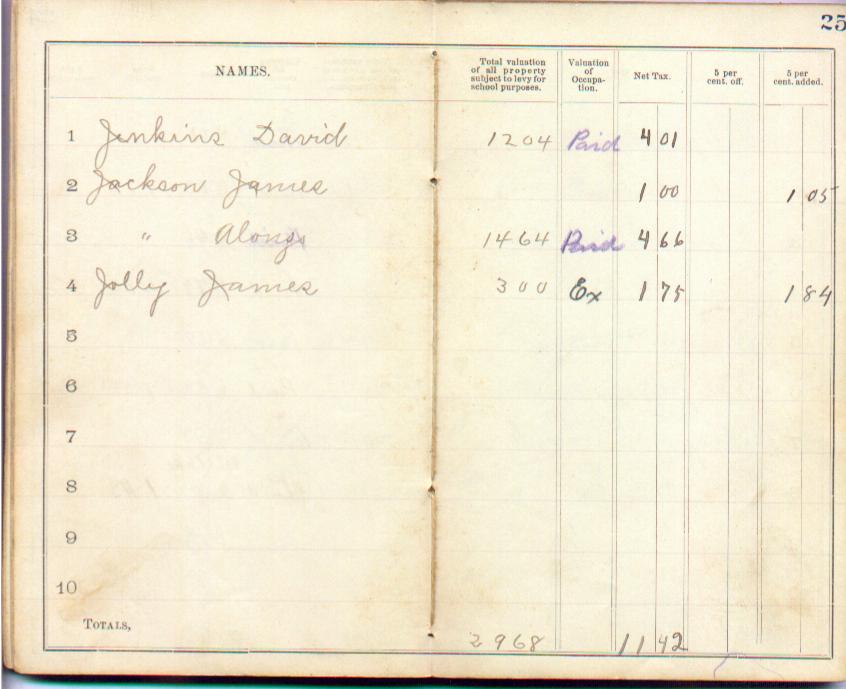 25
NAMES. Total valuation of all property subject to levy for school purposes. Valuation of Occupa-tion. Net Tax. 5 per cent. off. 5 per cent. added.
1 Jenkins David 1204 Paid 4 01
2 Jackson James 1 00 1 05
3 " Alonzo 1464 Paid 4 66
4 Jolly James 300 Ex 1 75 1 84
5
6
7
8
9
10
TOTALS, 2968 11 42